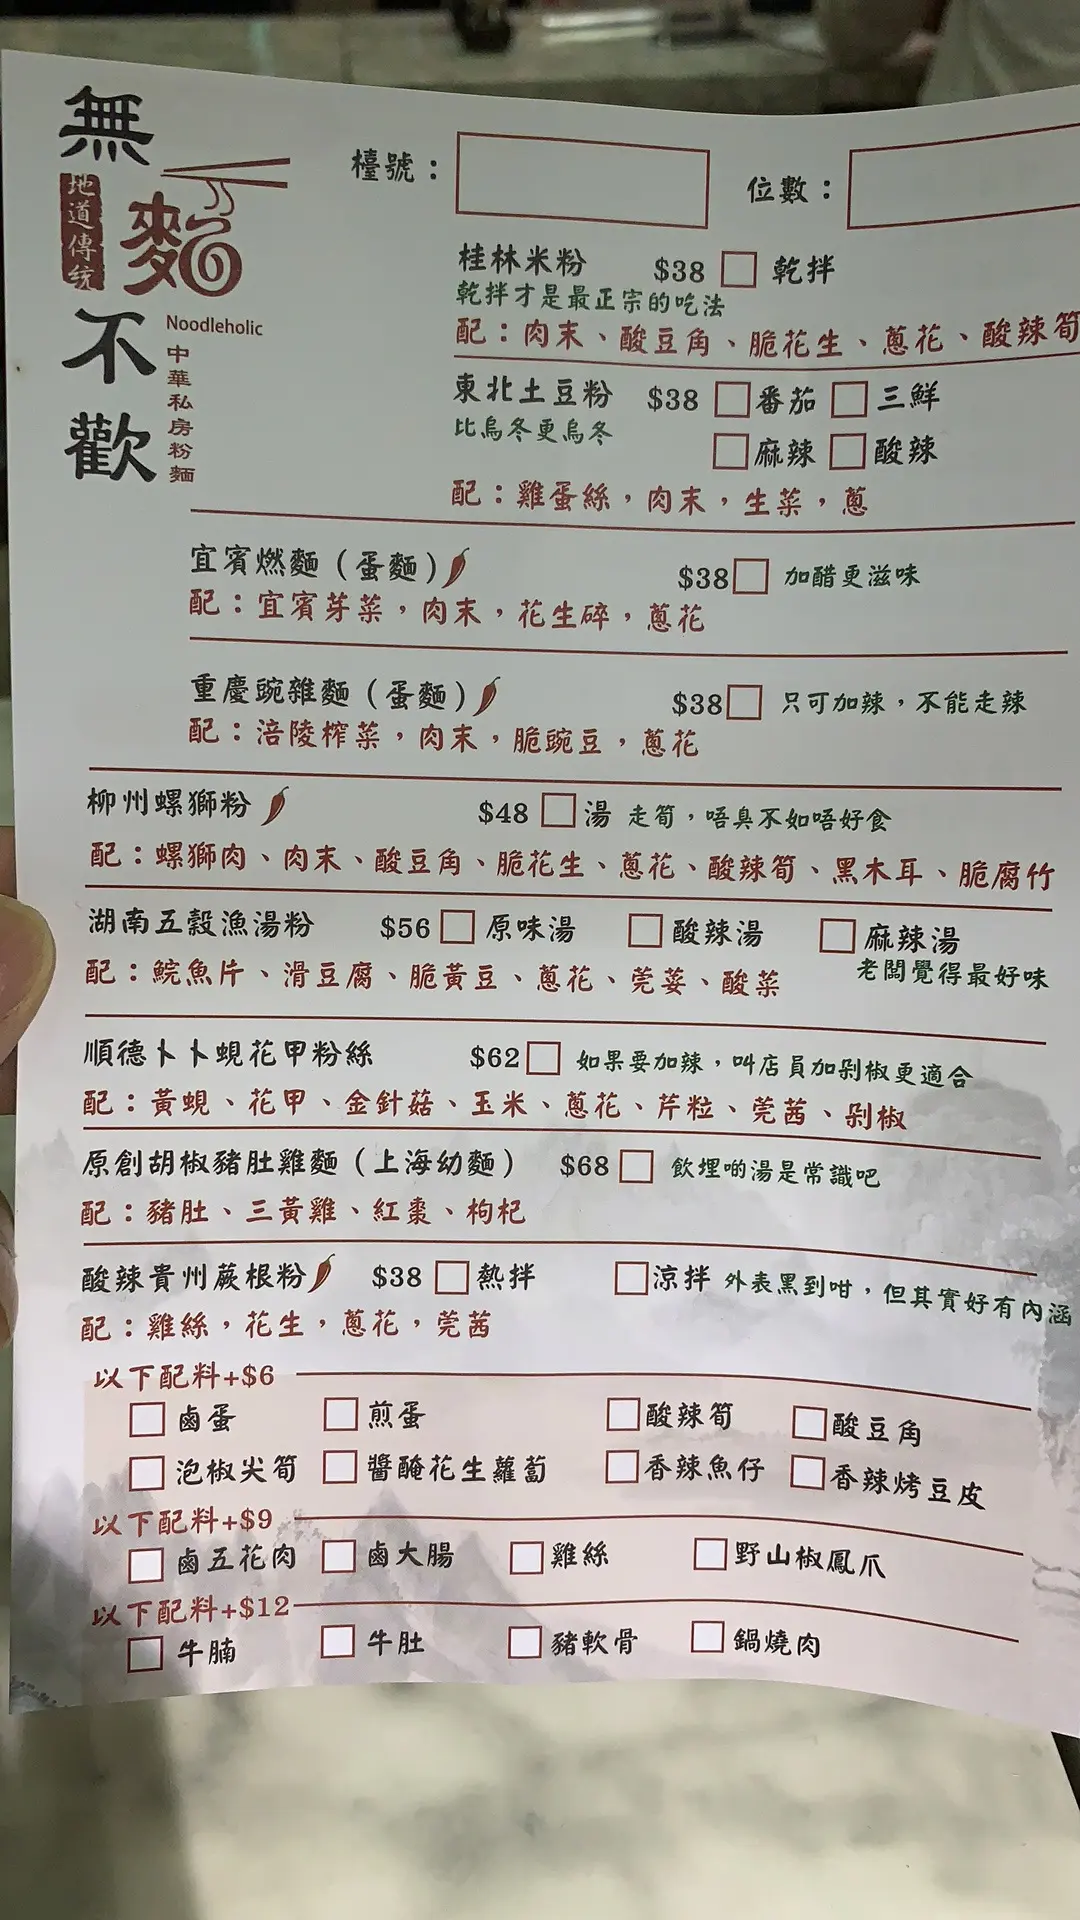 無麵不歡
地道傳統
Noodleholic
中華私房粉麵
檯號：
位數：
桂林米粉 $38 乾拌
乾拌才是最正宗的吃法
配：肉末、酸豆角、脆花生、蔥花、酸辣筍
東北土豆粉 $38 番茄 三鮮
比烏冬更烏冬
麻辣 酸辣
配：雞蛋絲，肉末，生菜，蔥
宜賓燃麵（蛋麵） $38 加醋更滋味
配：宜賓芽菜，肉末，花生碎，蔥花
重慶豌雜麵（蛋麵） $38 只可加辣，不能走辣
配：涪陵榨菜，肉末，脆豌豆，蔥花
柳州螺獅粉 $48 湯 走筍，唔臭不如唔好食
配：螺獅肉、肉末、酸豆角、脆花生、蔥花、酸辣筍、黑木耳、脆腐竹
湖南五穀漁湯粉 $56 原味湯 酸辣湯 麻辣湯
老闆覺得最好味
配：鯇魚片、滑豆腐、脆黃豆、蔥花、莞荽、酸菜
順德卜卜蜆花甲粉絲 $62 如果要加辣，叫店員加剁椒更適合
配：黃蜆、花甲、金針菇、玉米、蔥花、芹粒、莞茜、剁椒
原創胡椒豬肚雞麵（上海幼麵） $68 飲埋啲湯是常識吧
配：豬肚、三黃雞、紅棗、枸杞
酸辣貴州蕨根粉 $38 熱拌 涼拌 外表黑到咁，但其實好有內涵
配：雞絲，花生，蔥花，莞茜
以下配料+$6
鹵蛋 煎蛋 酸辣筍 酸豆角
泡椒尖筍 醬醃花生蘿蔔 香辣魚仔 香辣烤豆皮
以下配料+$9
鹵五花肉 鹵大腸 雞絲 野山椒鳳爪
以下配料+$12
牛腩 牛肚 豬軟骨 鍋燒肉